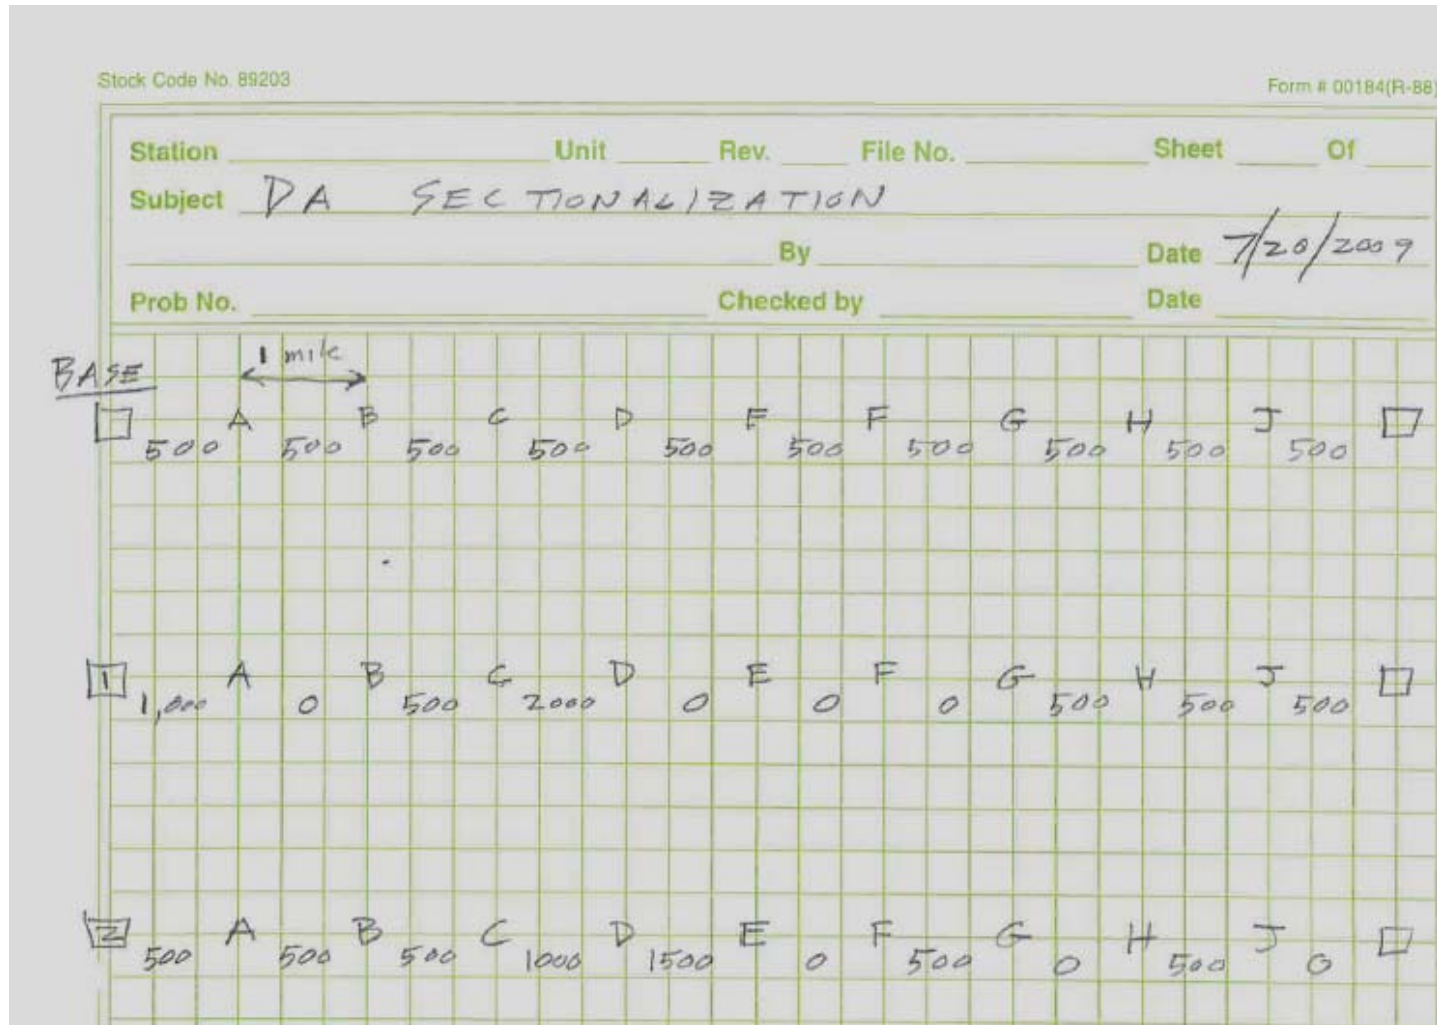 Stock Code No. 89203 Form # 00184(R-88)
Station Unit Rev. File No. Sheet Of
Subject DA SECTIONALIZATION
By Date 7/20/2009
Prob No. Checked by Date
1 mile
BASE
A B C D E F G H J
500 500 500 500 500 500 500 500 500 500
1 A B C D E F G H J
1,000 0 500 2000 0 0 0 500 500 500
2 A B C D E F G H J
500 500 500 1000 1500 0 500 0 500 0